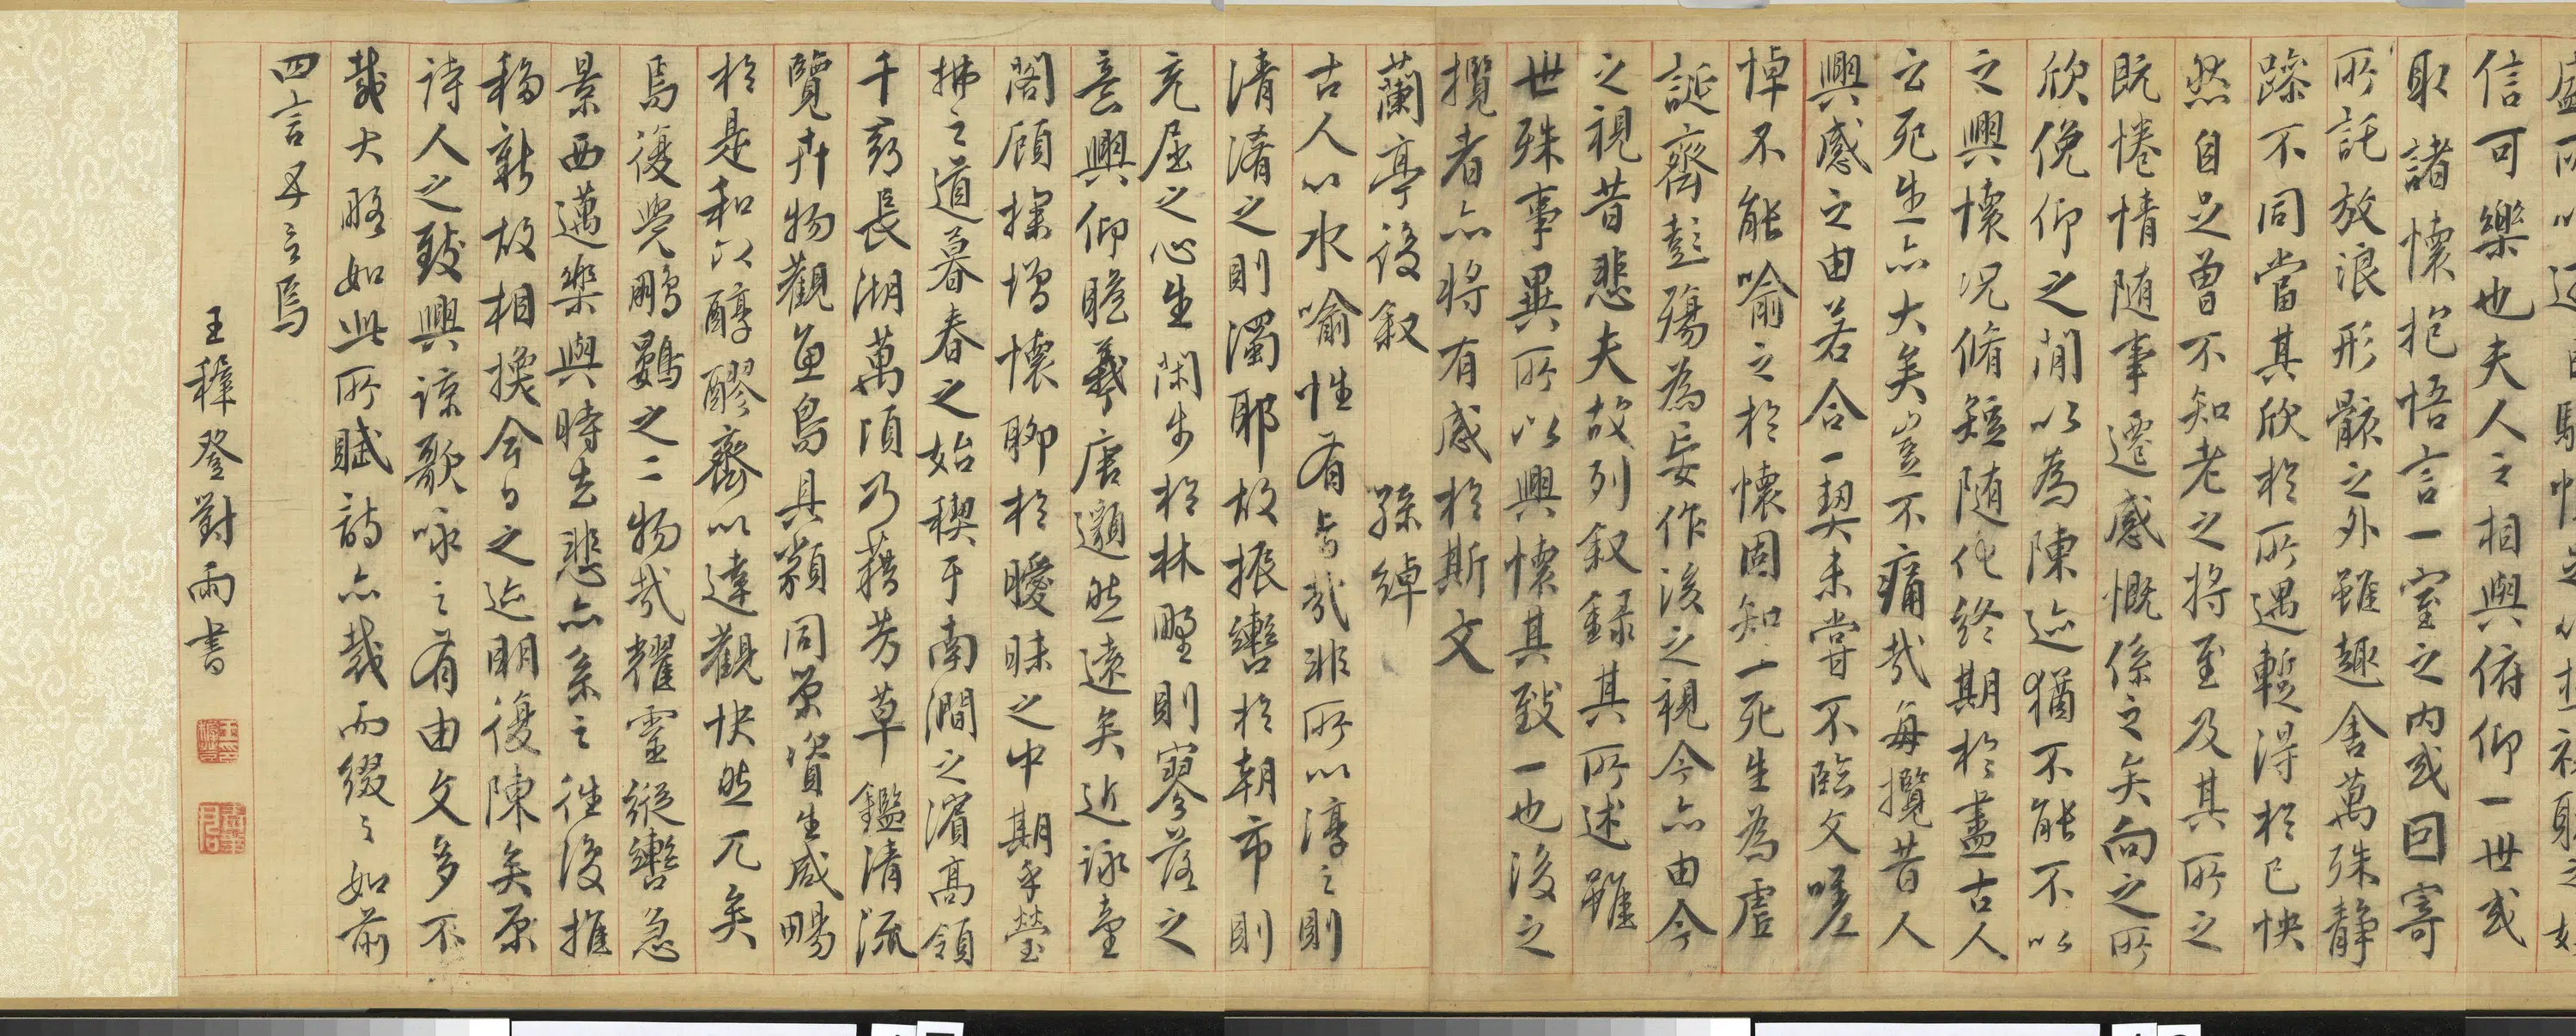 信可樂也夫人之相與俯仰一世或
取諸懷抱悟言一室之内或因寄
所託放浪形骸之外雖趣舍萬殊静
躁不同當其欣於所遇暫得於己快
然自足曾不知老之将至及其所之
既惓情随事遷感慨係之矣向之所
欣俛仰之閒以為陳迹猶不能不以
之興懷况脩短随化終期於盡古人
云死生亦大矣豈不痛哉每攬昔人
興感之由若合一契未嘗不臨文嗟
悼不能喻之於懷固知一死生為虚
誕齊彭殤為妄作後之視今亦由今
之視昔悲夫故列叙録其所述雖
世殊事異所以興懷其致一也後之
攬者亦将有感於斯文
蘭亭後叙 孫綽
古人以水喻性有旨哉非所以渟之則
清淆之則濁耶故振轡於朝市則
充屈之心生閑步於林野則寥落之
意興仰瞻羲唐邈然遠矣近詠臺
閣顧探增懷聊於曖昧之中期乎瑩
拂之道暮春之始禊于南澗之濱高領
千尋長湖萬頃乃藉芳草鑑清流
覽卉物觀魚鳥具類同榮資生咸暢
於是和以醇醪齊以達觀快然兀矣
焉復覺鵬鷃之二物哉耀靈縱轡急
景西邁樂與時去悲亦系之往復推
移新故相換今日之迹明復陳矣原
詩人之致興諒歌咏之有由文多不
載大略如此所賦詩亦裁而綴之如前
四言五言焉
王穉登對雨書